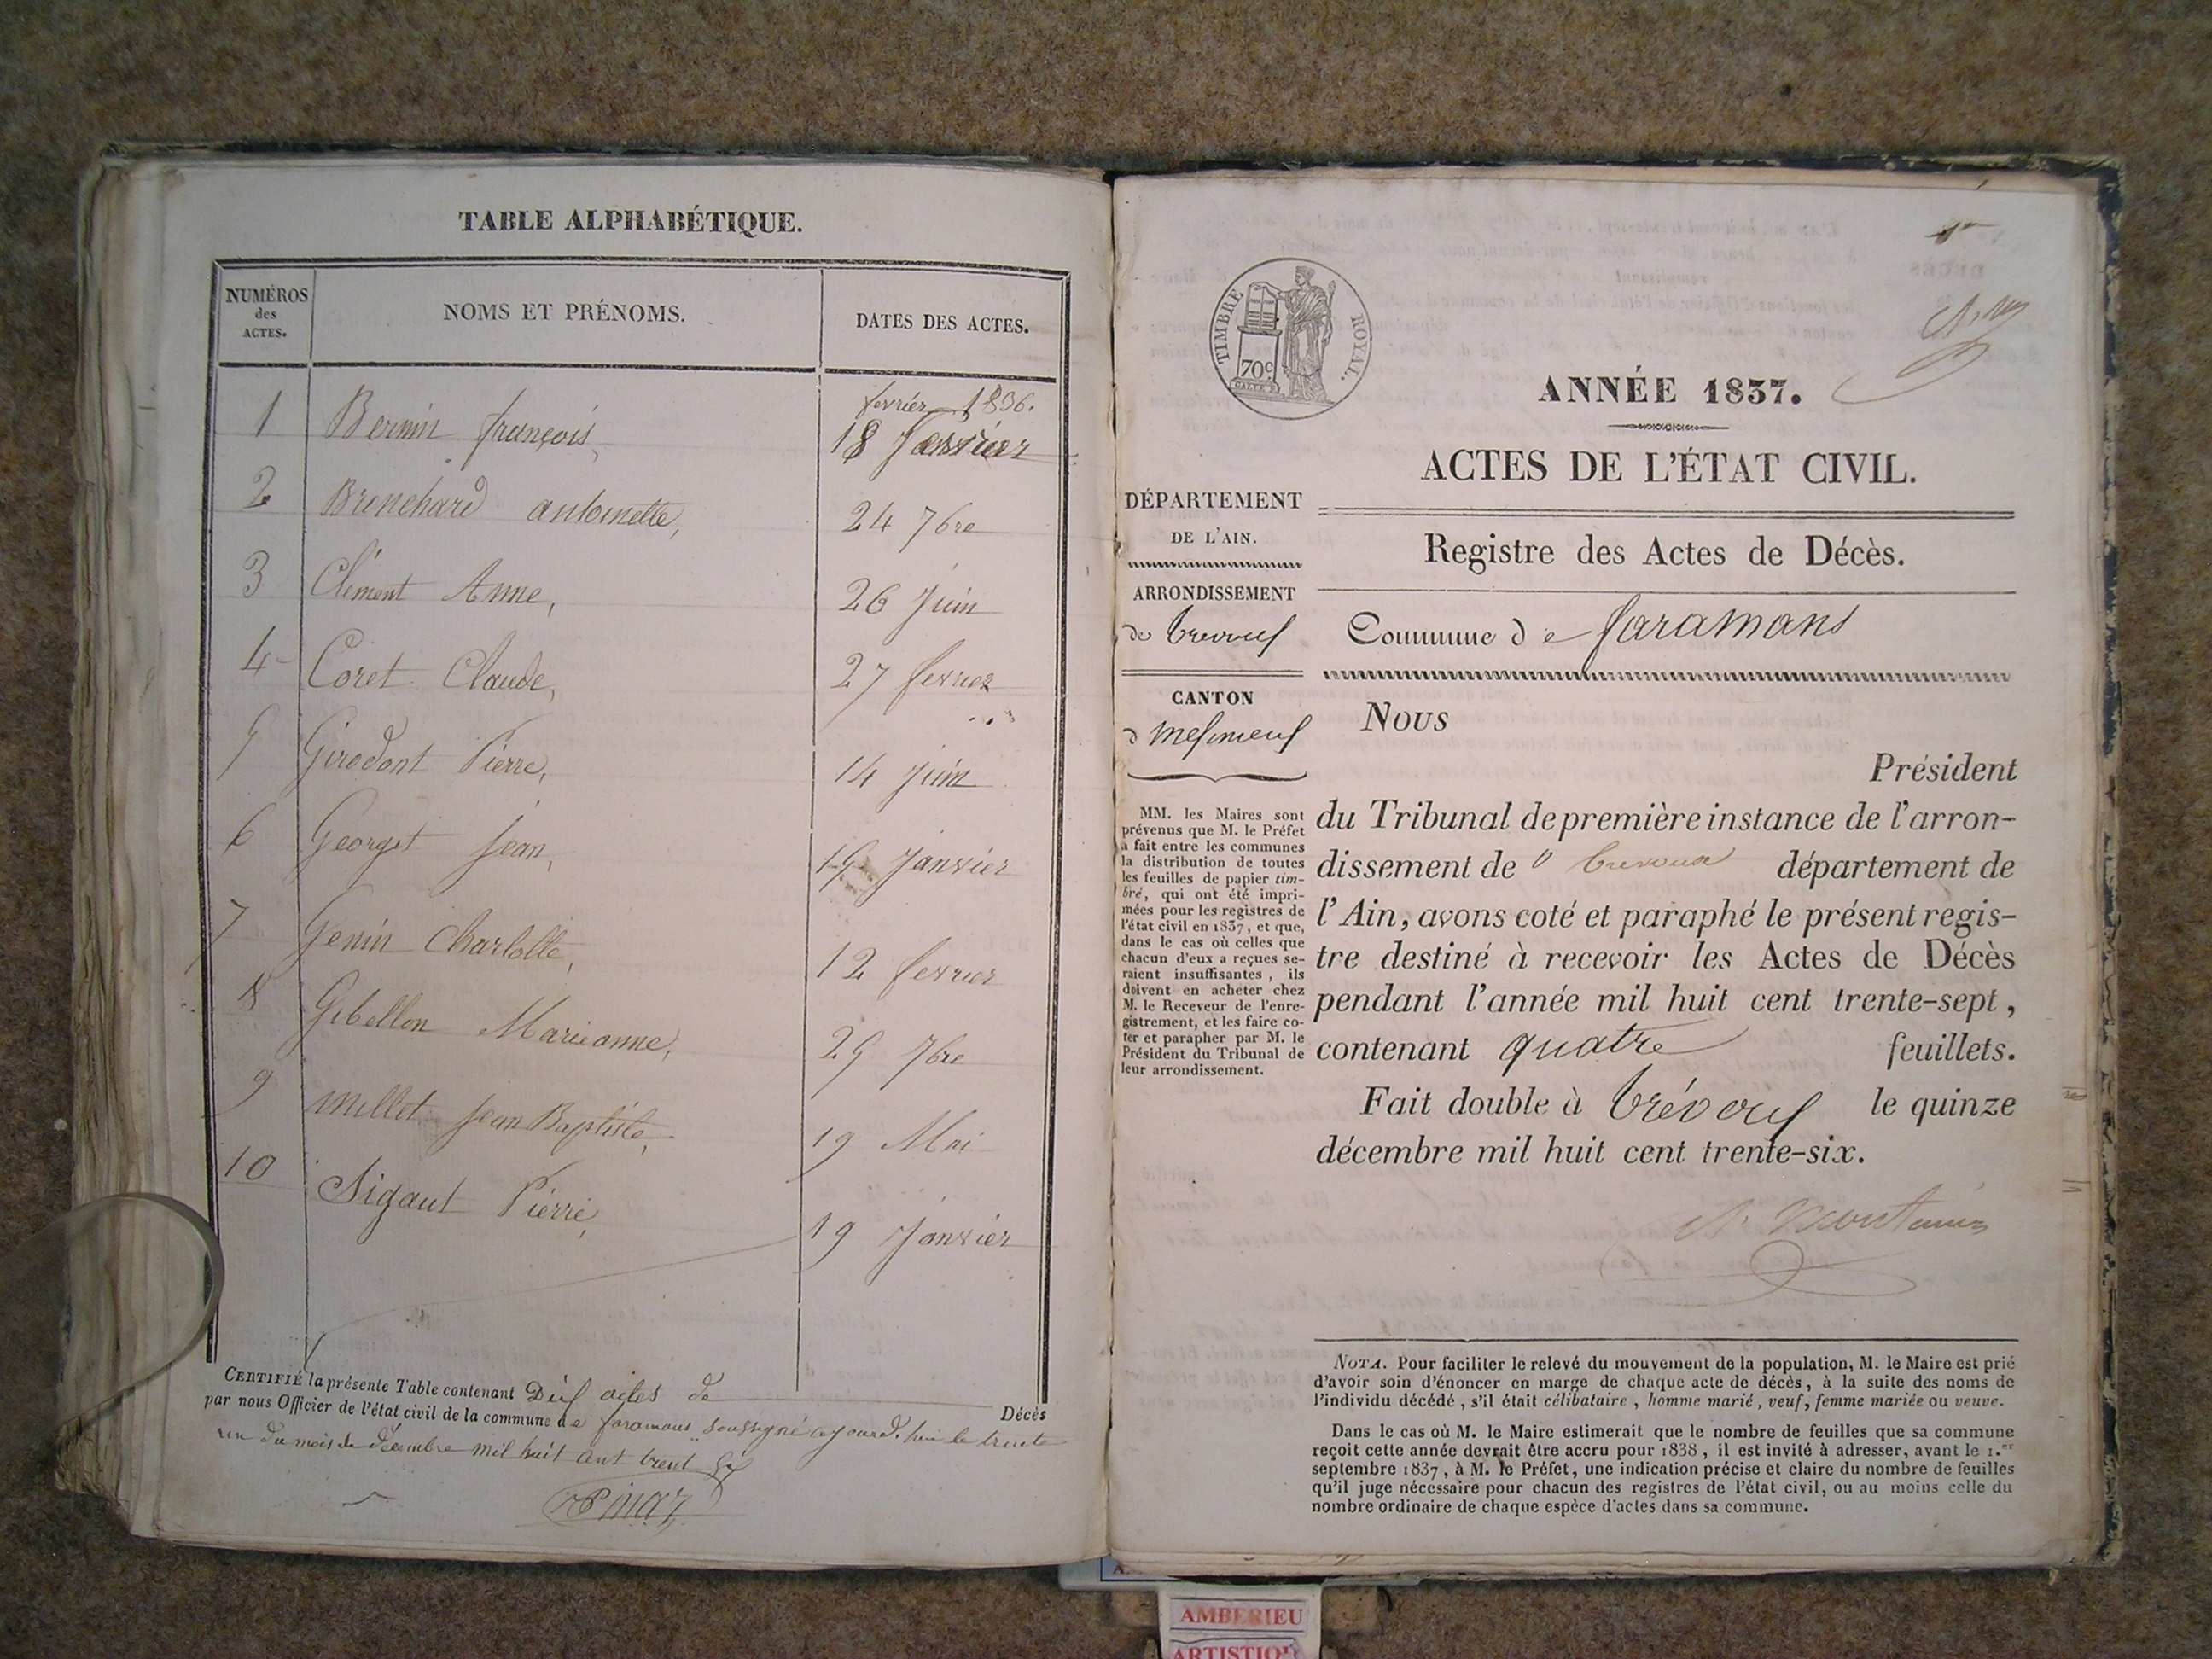 TABLE ALPHABÉTIQUE.
NUMÉROS
des
ACTES.
NOMS ET PRÉNOMS.
DATES DES ACTES.
fevrier 1836.
1 Bernin françois, 18 Janvier
2 Brenchard antoinette, 24 7bre
3 Clément Anne, 26 Juin
4 Coret Claude, 27 fevrier
5 Girodont Pierre, 14 juin
6 Georget Jean, 19 Janvier
7 Genin Charlotte, 12 fevrier
8 Gibellon Marieanne, 29 7bre
9 Millet Jean Baptiste, 19 Mai
10 Sigaut Pierre, 19 Janvier
CERTIFIÉ la présente Table contenant Dix actes de Décès
par nous Officier de l'état civil de la commune de faramans soussigné aujourd'hui le trente
un du mois de décembre mil huit cent trent six
TIMBRE ROYAL.
70c
ANNÉE 1837.
ACTES DE L'ÉTAT CIVIL.
DÉPARTEMENT
DE L'AIN.
Registre des Actes de Décès.
ARRONDISSEMENT
de Trevoux
Commune de faramans
CANTON
d meximeux
Nous
Président
du Tribunal de première instance de l'arron-
dissement de Trevoux département de
l'Ain, avons coté et paraphé le présent regis-
tre destiné à recevoir les Actes de Décès
pendant l'année mil huit cent trente-sept,
contenant quatre feuillets.
Fait double à Trévoux le quinze
décembre mil huit cent trente-six.
MM. les Maires sont
prévenus que M. le Préfet
a fait entre les communes
la distribution de toutes
les feuilles de papier tim-
bré, qui ont été impri-
mées pour les registres de
l'état civil en 1837, et que,
dans le cas où celles que
chacun d'eux a reçues se-
raient insuffisantes, ils
doivent en acheter chez
M. le Receveur de l'enre-
gistrement, et les faire co-
ter et parapher par M. le
Président du Tribunal de
leur arrondissement.
NOTA. Pour faciliter le relevé du mouvement de la population, M. le Maire est prié
d'avoir soin d'énoncer en marge de chaque acte de décès, à la suite des noms de
l'individu décédé, s'il était célibataire, homme marié, veuf, femme mariée ou veuve.
Dans le cas où M. le Maire estimerait que le nombre de feuilles que sa commune
reçoit cette année devrait être accru pour 1838, il est invité à adresser, avant le 1.er
septembre 1837, à M. le Préfet, une indication précise et claire du nombre de feuilles
qu'il juge nécessaire pour chacun des registres de l'état civil, ou au moins celle du
nombre ordinaire de chaque espèce d'actes dans sa commune.
AMBERIEU